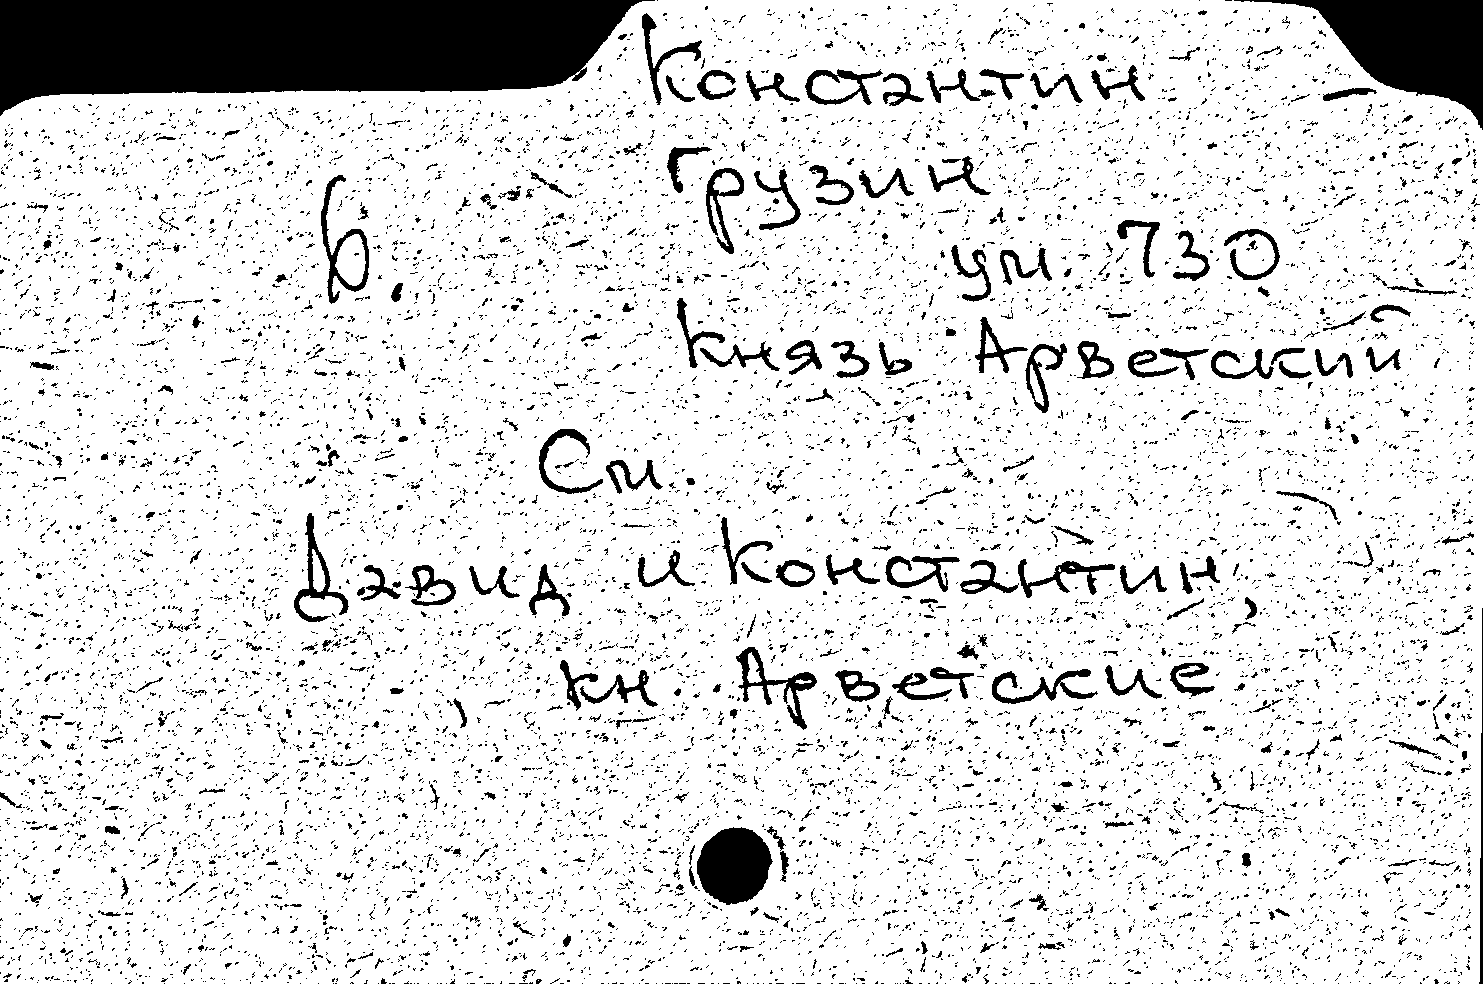 Константин
Грузин
б.
ум. 730
князь Арветский
См.
Давид и Константин,
кн. Арветские